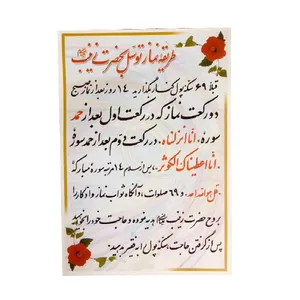 طریقه نماز توسل بحضرت زینب
قبلا ۶۹ سکه پول کنار بگذارید ۱۴ روز بعد از نماز صبح
دو رکعت نماز که در رکعت اول بعد از حمد
سوره انا انزلناه، در رکعت دوم بعد از حمد سوره
انا اعطیناک الکوثر، پس از سلام ۱۴ مرتبه سوره مبارکه
قل هو الله احد و ۶۹ صلوات، آنگاه ثواب نماز و اذکار را
بروح حضرت زینب هدیه نموده و حاجت خود را بخواهید
پس از گرفتن حاجت، سکه پول را به فقیر بدهید.